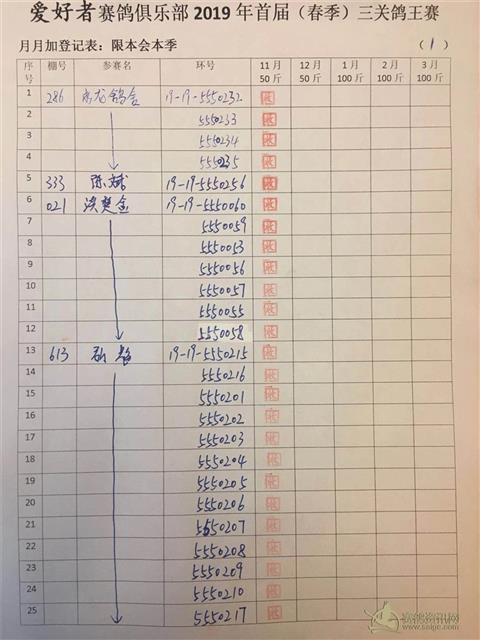 爱好者赛鸽俱乐部 2019 年首届（春季）三关鸽王赛
月月加登记表：限本会本季 （1）
序号 棚号 参赛名 环号 11月50斤 12月50斤 1月100斤 2月100斤 3月100斤
1 286 龙鸽舍 19-19-5550232
2 5550233
3 5550234
4 5550235
5 333 陈斌 19-19-5550256
6 021 洪楚金 19-19-5550060
7 5550059
8 5550053
9 5550056
10 5550057
11 5550055
12 5550058
13 613 19-19-5550215
14 5550216
15 5550201
16 5550202
17 5550203
18 5550204
19 5550205
20 5550206
21 5550207
22 5550208
23 5550209
24 5550210
25 5550217
赛鸽资讯网
www.saige.com